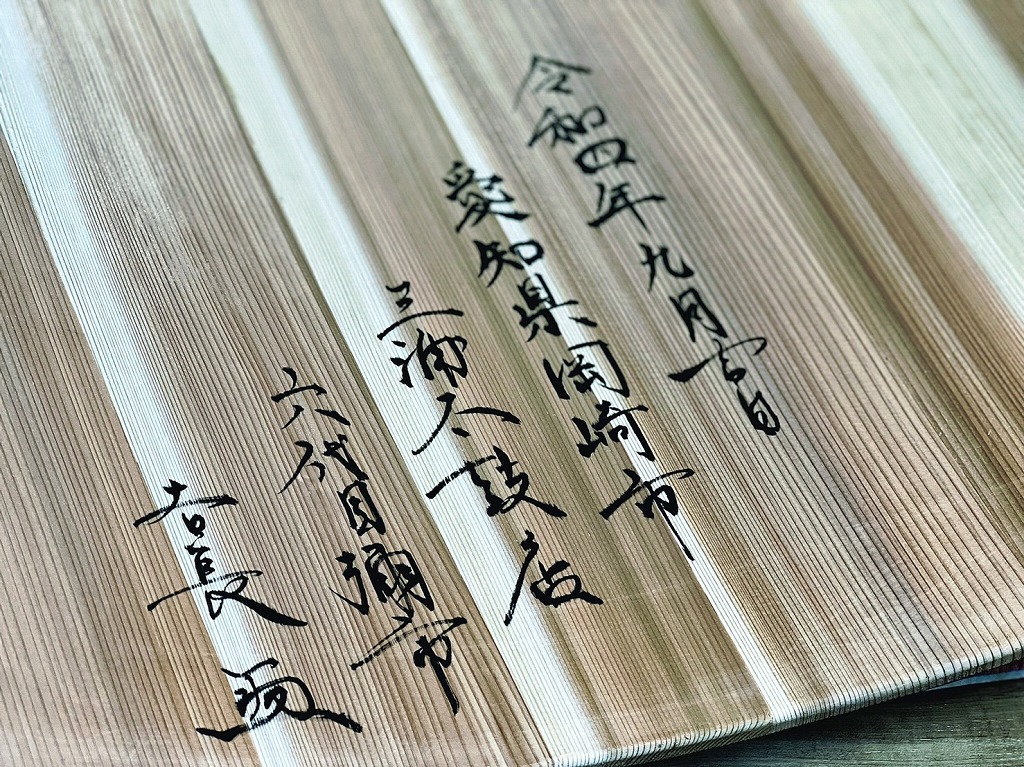 令和四年九月吉日
愛知県岡崎市
三浦太鼓店
六代目彌市
吉長